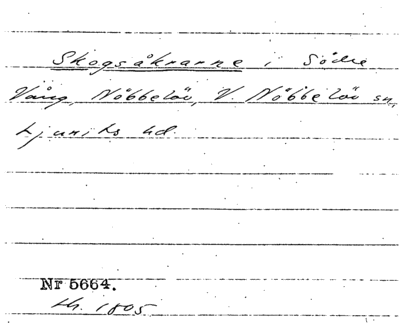 Skogsåkrarne i Södra
Vång, Nöbbelöv, V. Nöbbelöv sn,
Ljunits hd.
Nr 5664.
th. 1805